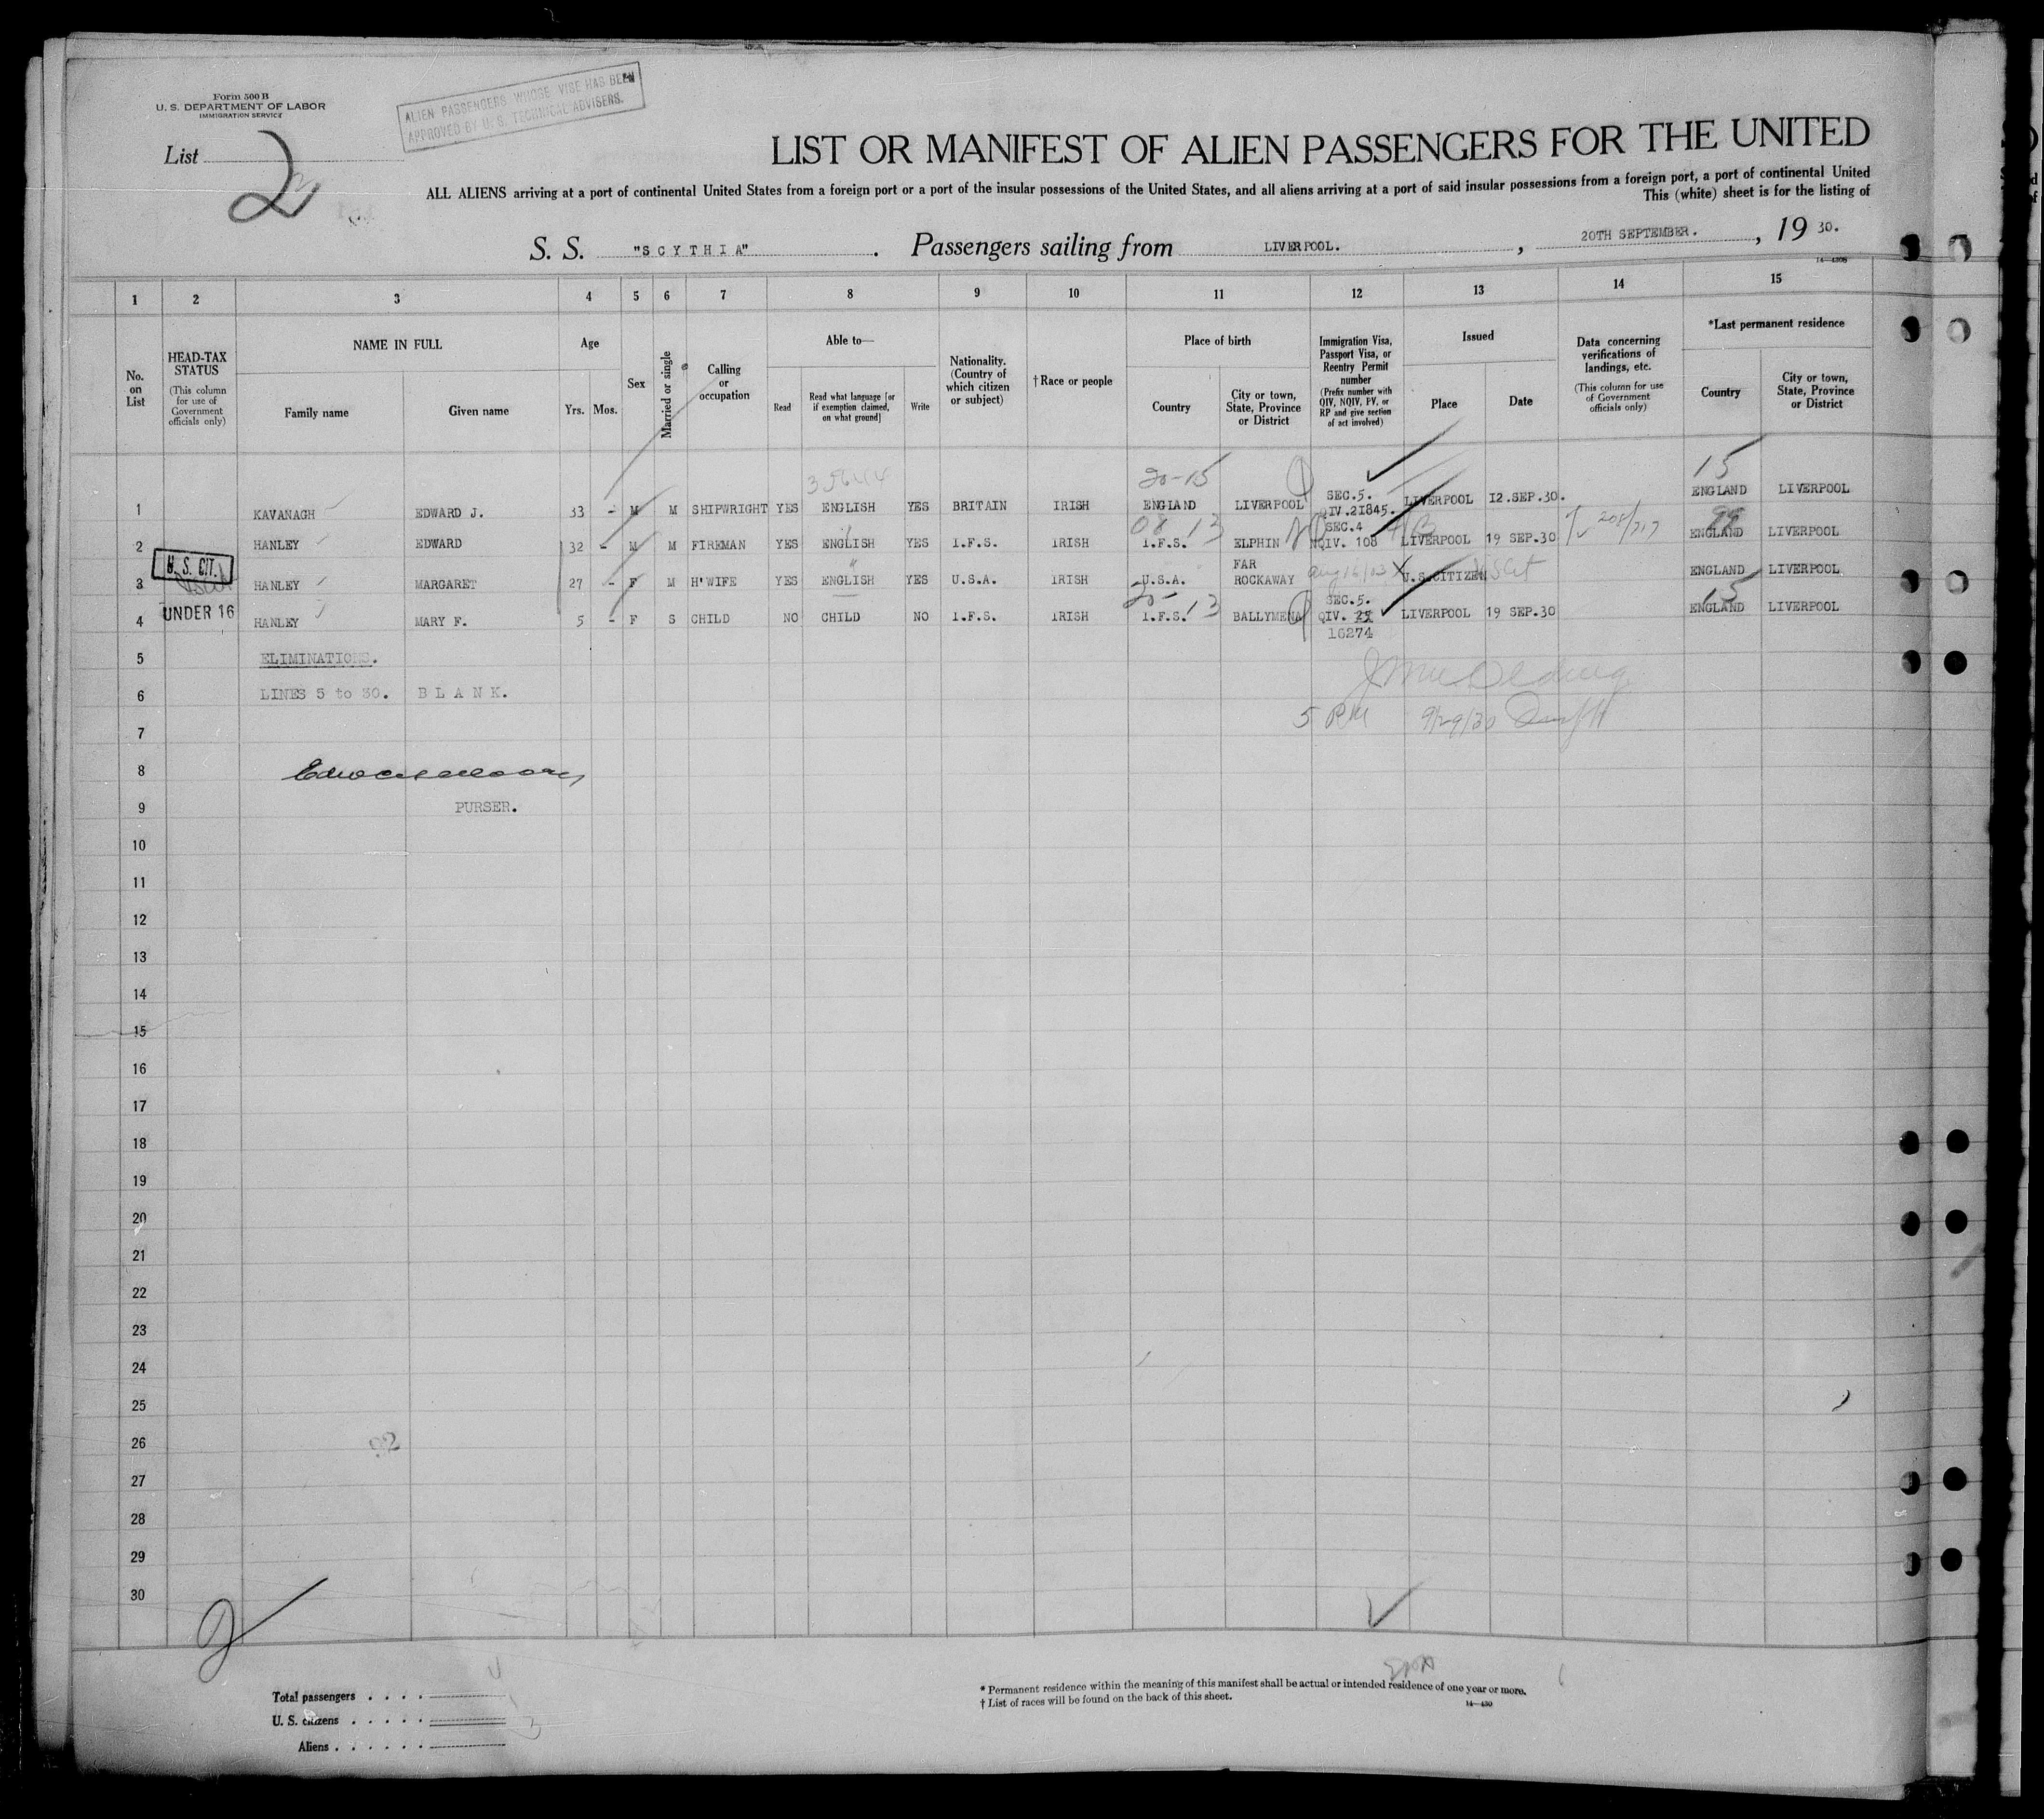 Form 500 B
U. S. DEPARTMENT OF LABOR
IMMIGRATION SERVICE
ALIEN PASSENGERS WHOSE VISE HAS BEEN
APPROVED BY U. S. TECHNICAL ADVISERS.
List 2
LIST OR MANIFEST OF ALIEN PASSENGERS FOR THE UNITED
ALL ALIENS arriving at a port of continental United States from a foreign port or a port of the insular possessions of the United States, and all aliens arriving at a port of said insular possessions from a foreign port, a port of continental United
This (white) sheet is for the listing of
S. S. "SCYTHIA". Passengers sailing from LIVERPOOL. , 20TH SEPTEMBER. , 19 30.
14—430B
1 2 3 4 5 6 7 8 9 10 11 12 13 14 15
No. on List
HEAD-TAX STATUS (This column for use of Government officials only)
NAME IN FULL
Family name
Given name
Age
Yrs. Mos.
Sex
Married or single
Calling or occupation
Able to—
Read
Read what language [or if exemption claimed, on what ground]
Write
Nationality. (Country of which citizen or subject)
†Race or people
Place of birth
Country
City or town, State, Province or District
Immigration Visa, Passport Visa, or Reentry Permit number (Prefix number with QIV, NQIV, PV, or RP and give section of act involved)
Issued
Place
Date
Data concerning verifications of landings, etc. (This column for use of Government officials only)
*Last permanent residence
Country
City or town, State, Province or District
20-15
15
1 KAVANAGH EDWARD J. 33 - M M SHIPWRIGHT YES ENGLISH YES BRITAIN IRISH ENGLAND LIVERPOOL SEC.5. QIV.21845. LIVERPOOL 12.SEP.30. ENGLAND LIVERPOOL
08 13
99
2 HANLEY EDWARD 32 - M M FIREMAN YES ENGLISH YES I.F.S. IRISH I.F.S. ELPHIN SEC.4 NQIV. 108 LIVERPOOL 19 SEP.30 208/717 ENGLAND LIVERPOOL
U. S. CIT.
3 HANLEY MARGARET 27 - F M H'WIFE YES ENGLISH YES U.S.A. IRISH U.S.A. FAR ROCKAWAY Aug 16/03 X U.S.CITIZEN US Cit ENGLAND LIVERPOOL
20- 13
15
UNDER 16
4 HANLEY MARY F. 5 - F S CHILD NO CHILD NO I.F.S. IRISH I.F.S. BALLYMENA SEC.5. QIV. 25 16274 LIVERPOOL 19 SEP.30 ENGLAND LIVERPOOL
5 ELIMINATIONS.
6 LINES 5 to 30. BLANK.
5 PM 9/29/30
7
8
9 PURSER.
10
11
12
13
14
15
16
17
18
19
20
21
22
23
24
25
26
92
27
28
29
30
2
Total passengers . . . . 4
U. S. citizens . . . . . 1
Aliens . . . . . . 3
* Permanent residence within the meaning of this manifest shall be actual or intended residence of one year or more.
† List of races will be found on the back of this sheet.
14—430